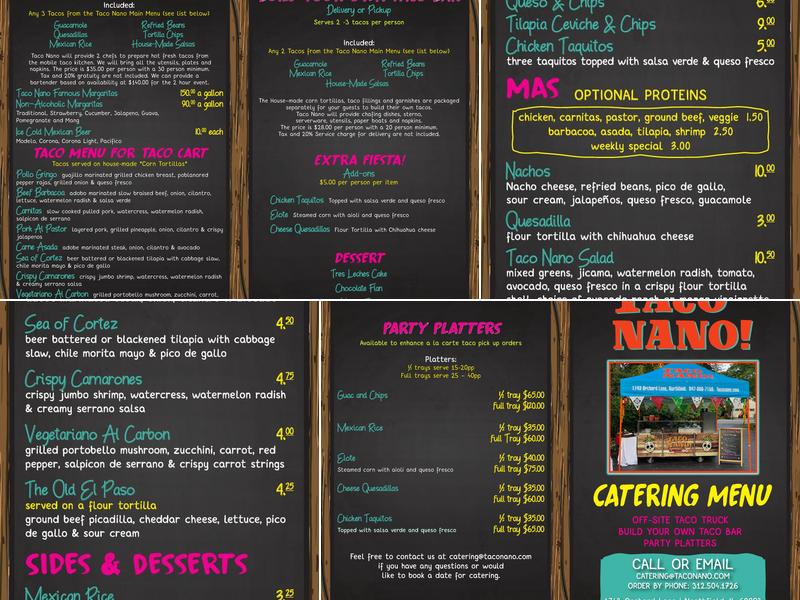 Included:
Any 3 Tacos from the Taco Nano Main Menu (see list below)
Guacamole Refried Beans
Quesadillas Tortilla Chips
Mexican Rice House-Made Salsas
Taco Nano will provide 2 chefs to prepare hot fresh tacos from
the mobile taco kitchen. We will bring all the utensils, plates and
napkins. The price is $35.00 per person with a 30 person minimum.
Tax and 20% gratuity are not included. We can provide a
bartender based on availability at $140.00 for the 2 hour event.
Taco Nano Famous Margaritas 150.00 a gallon
Non-Alcoholic Margaritas 90.00 a gallon
Traditional, Strawberry, Cucumber, Jalapeno, Guava,
Pomegranate and Mango
Ice Cold Mexican Beer 10.00 each
Modelo, Corona, Corona Light, Pacifico
TACO MENU FOR TACO CART
Tacos served on house-made "Corn Tortillas"
Pollo Gringo guajillo marinated grilled chicken breast, poblanored
pepper rajas, grilled onion & queso fresco
Beef Barbacoa adobo marinated slow braised beef, onion, cilantro,
lettuce, watermelon radish & salsa verde
Carnitas slow cooked pulled pork, watercress, watermelon radish,
salpicon de serrano
Pork Al Pastor layered pork, grilled pineapple, onion, cilantro & crispy
jalapenos
Carne Asada adobo marinated steak, onion, cilantro & avocado
Sea of Cortez beer battered or blackened tilapia with cabbage slaw,
chile morita mayo & pico de gallo
Crispy Camarones crispy jumbo shrimp, watercress, watermelon radish
& creamy serrano salsa
Vegetariano Al Carbon grilled portobello mushroom, zucchini, carrot,
Delivery or Pickup
Serves 2 -3 tacos per person
Included:
Any 2 Tacos from the Taco Nano Main Menu (see list below)
Guacamole Refried Beans
Mexican Rice Tortilla Chips
House-Made Salsas
The House-made corn tortillas, taco fillings and garnishes are packaged
separately for your guests to build their own tacos.
Taco Nano will provide chafing dishes, sterno,
serverware, utensils, paper boats and napkins.
The price is $28.00 per person with a 20 person minimum.
Tax and 20% Service charge for delivery are not included.
EXTRA FIESTA!
Add-ons
$5.00 per person per item
Chicken Taquitos Topped with salsa verde and queso fresco
Elote Steamed corn with aioli and queso fresco
Cheese Quesadillas Flour Tortilla with Chihuahua cheese
DESSERT
Tres Leches Cake
Chocolate Flan
Queso & Chips
Tilapia Ceviche & Chips 9.00
Chicken Taquitos 5.00
three taquitos topped with salsa verde & queso fresco
MAS OPTIONAL PROTEINS
chicken, carnitas, pastor, ground beef, veggie 1.50
barbacoa, asada, tilapia, shrimp 2.50
weekly special 3.00
Nachos 10.00
Nacho cheese, refried beans, pico de gallo,
sour cream, jalapeños, queso fresco, guacamole
Quesadilla 3.00
flour tortilla with chihuahua cheese
Taco Nano Salad 10.50
mixed greens, jicama, watermelon radish, tomato,
avocado, queso fresco in a crispy flour tortilla
Sea of Cortez 4.50
beer battered or blackened tilapia with cabbage
slaw, chile morita mayo & pico de gallo
Crispy Camarones 4.75
crispy jumbo shrimp, watercress, watermelon radish
& creamy serrano salsa
Vegetariano Al Carbon 4.00
grilled portobello mushroom, zucchini, carrot, red
pepper, salpicon de serrano & crispy carrot strings
The Old El Paso 4.25
served on a flour tortilla
ground beef picadilla, cheddar cheese, lettuce, pico
de gallo & sour cream
SIDES & DESSERTS
Mexican Rice 3.25
PARTY PLATTERS
Available to enhance a la carte taco pick up orders
Platters:
½ trays serve 15-20pp
Full trays serve 25 - 40pp
Guac and Chips ½ tray $65.00
Full tray $120.00
Mexican Rice ½ tray $35.00
Full Tray $60.00
Elote ½ tray $40.00
Steamed corn with aioli and queso fresco Full tray $75.00
Cheese Quesadillas ½ tray $35.00
Full tray $60.00
Chicken Taquitos ½ tray $35.00
Topped with salsa verde and queso fresco Full tray $65.00
Feel free to contact us at catering@taconano.com
if you have any questions or would
like to book a date for catering.
TACO
NANO!
CATERING MENU
OFF-SITE TACO TRUCK
BUILD YOUR OWN TACO BAR
PARTY PLATTERS
CALL OR EMAIL
CATERING@TACONANO.COM
ORDER BY PHONE: 312.504.1726